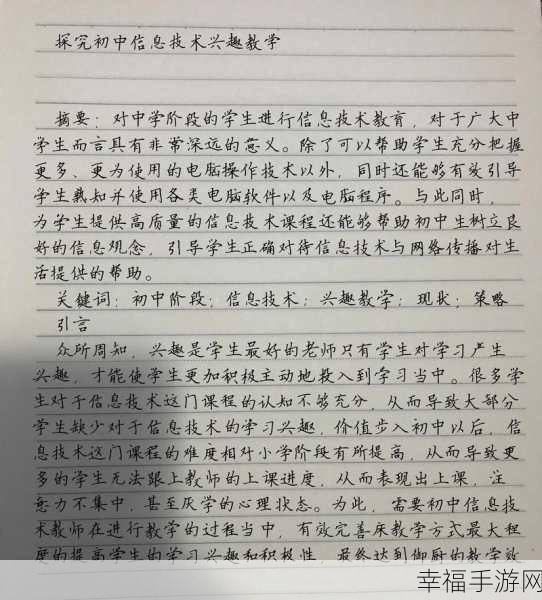 探究初中信息技术兴趣教学
摘要：对中学阶段的学生进行信息技术教育，对于广大中
学生而言具有非常深远的意义。除了可以帮助学生充分把握
更多、更为使用的电脑操作技术以外，同时还能够有效引导
学生熟知并使用各类电脑软件以及电脑程序。与此同时，
为学生提供高质量的信息技术课程还能够帮助初中生树立良
好的信息观念，引导学生正确对待信息技术与网络传播对生
活提供的帮助。
关键词：初中阶段；信息技术；兴趣教学；现状；策略
引言
众所周知，兴趣是学生最好的老师只有学生对学习产生
兴趣，才能使学生更加积极主动地投入到学习当中。很多学
生对于信息技术这门课程的认知不够充分，从而导致大部分
学生缺少对于信息技术的学习兴趣，价值步入初中以后，信
息技术这门课程的难度相对小学阶段有所提高，从而导致更
多的学生无法跟上教师的上课进度，从而表现出上课，注
意力不集中，甚至厌学的心理状态。为此，需要初中信息技
术教师在进行教学的过程当中，有效完善床教学方式最大程
度的提高学生的学习兴趣和积极性，最终达到御厨的教学效
幸福手游网